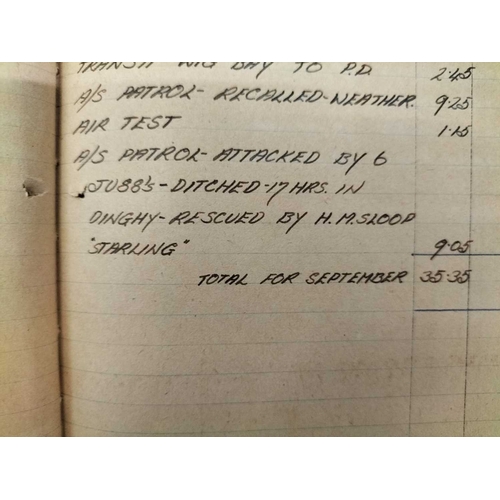 TRANSIT WIG BAY TO P.D. 2.45
A/S PATROL - RECALLED - WEATHER. 9.25
AIR TEST 1.15
A/S PATROL - ATTACKED BY 6
JU88's - DITCHED - 17 HRS. IN
DINGHY - RESCUED BY H.M. SLOOP
"STARLING" 9.05
TOTAL FOR SEPTEMBER 35.35